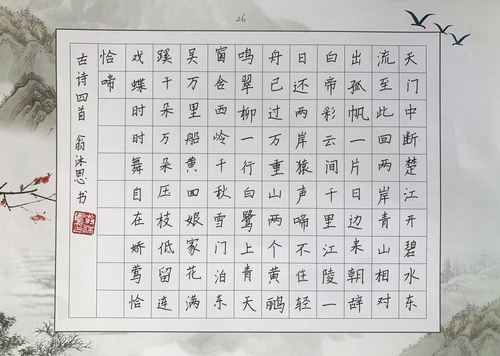 26
天门中断楚江开碧水东
流至此回两岸青山相对
出孤帆一片日边来朝辞
白帝彩云间千里江陵一
日还两岸猿声啼不住轻
舟已过万重山两个黄鹂
鸣翠柳一行白鹭上青天
窗含西岭千秋雪门泊东
吴万里船黄四娘家花满
蹊千朵万朵压枝低留连
戏蝶时时舞自在娇莺恰
恰啼
古诗四首 翁沐思 书